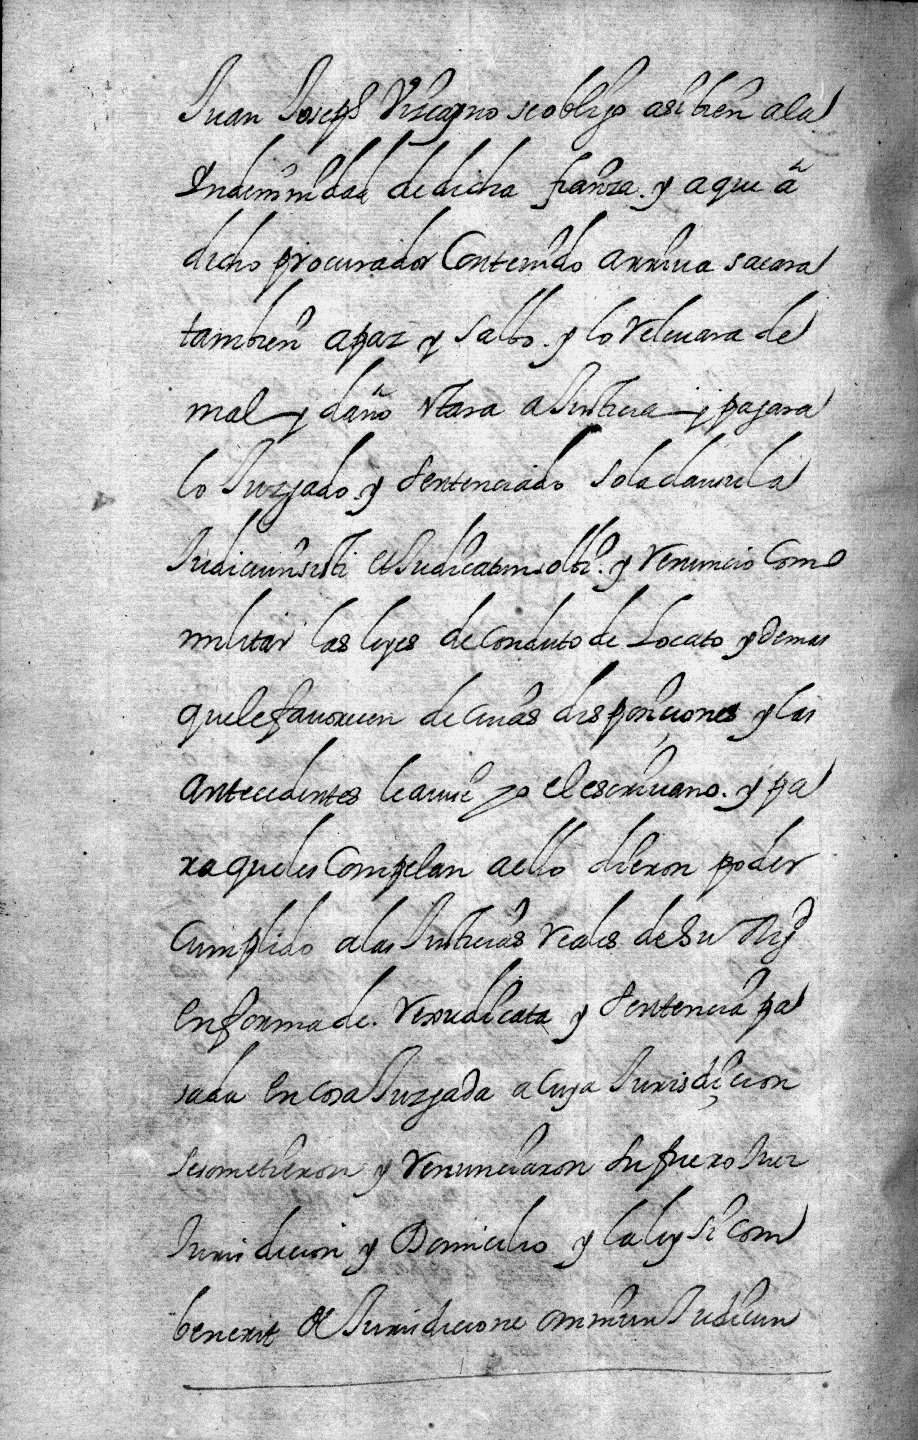 Juan Joseph Vizcayno se obligo asi bien a la
Yndemnidad de dicha fianza. y a que â
dicho procurador Contenido arriua sacara
tambien a paz y Salbo. y lo Releuara de
mal y daño stara a Justicia y pagara
lo Juzgado y Sentenciado so la clausula
Judiciumsisti et Judicatumsolbi. y Renuncio Como
militar las leyes de Conduto de Locato y demas
que le fauorecen de cuias disposiciones y las
antecedentes le auise yo el escriuano. y pa
ra que les Compelan a ello dieron poder
Cumplido a las Justicias Reales de Su Mgd
en forma de. Rexudicata y Sentencia pa
sada en cosa Juzgada a cuya Jurisdicion
se sometieron y Renunciaron su fuero Juez
Jurisdicion y Domicilio y la ley si com
benerit de Jurisdicione omnium Judicum